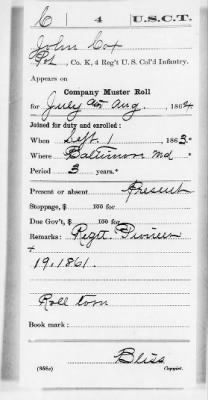 C 4 U.S.C.T.
John Cox
Pvt., Co. K, 4 Reg't U. S. Col'd Infantry.
Appears on
Company Muster Roll
for July & Aug., 1864
Joined for duty and enrolled:
When Sept. 1, 1863.
Where Baltimore Md
Period 3 years.*
Present or absent Present
Stoppage, $ 100 for
Due Gov't, $ 100 for
Remarks: Regt. Pioneer
19, 1861.
Roll torn
Book mark:
(858c) Bliss
Copyist.